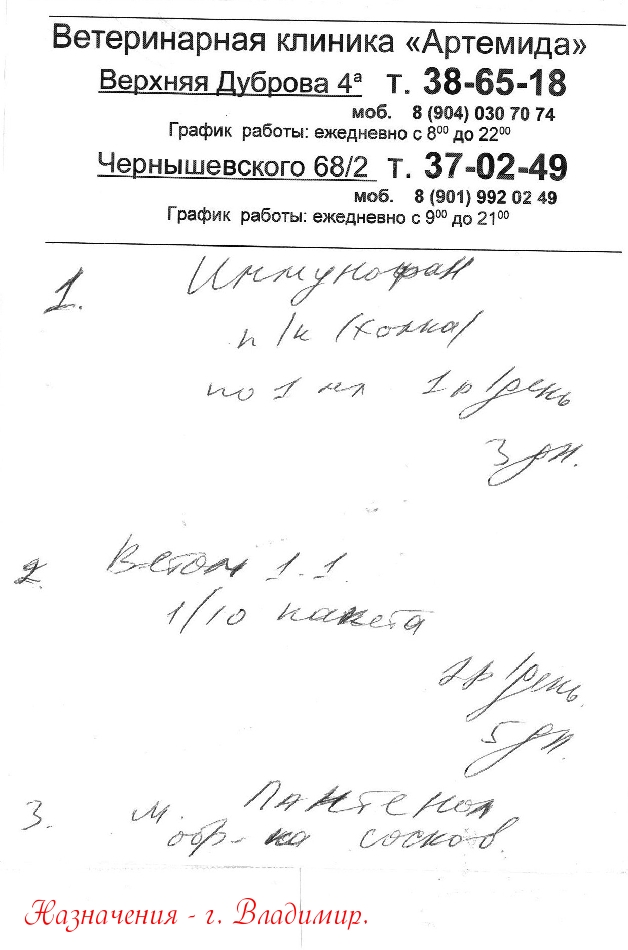 Ветеринарная клиника «Артемида»
Верхняя Дуброва 4а т. 38-65-18
моб. 8 (904) 030 70 74
График работы: ежедневно с 8⁰⁰ до 22⁰⁰
Чернышевского 68/2 т. 37-02-49
моб. 8 (901) 992 02 49
График работы: ежедневно с 9⁰⁰ до 21⁰⁰
1. Иммунофан
п/к (холка)
по 1 мл 1 р/день
3 дн.
2. Ветом 1.1.
1/10 пакета
2р/день.
5 дн.
3. м. Пантенол
обр-ка сосков.
Назначения - г. Владимир.